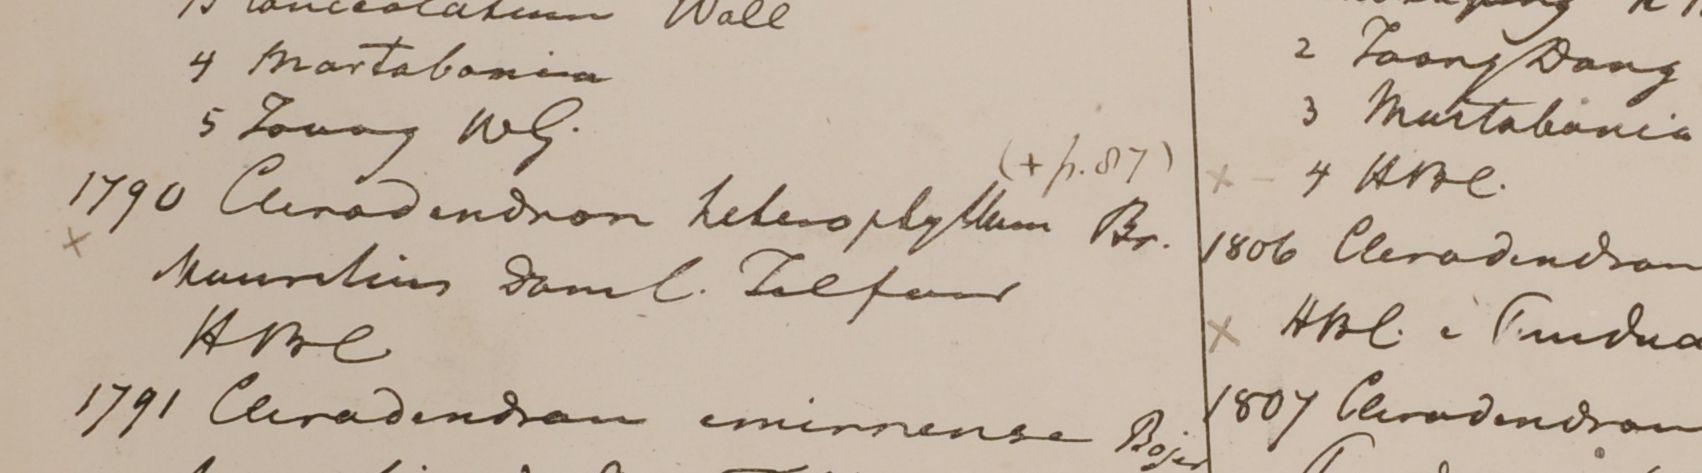 lanceolatum Wall
4 Martabania
5 Tavoy WG.
(+ p. 87)
1790 Clerodendron heterophyllum Br.
x
Mauritius Dom C. Telfair
HBC
1791 Clerodendron emirnense Bojer
2 Taong Dong
3 Martabania
x - 4 HBC.
1806 Clerodendron
x HBC. e
1807 Clerodendron